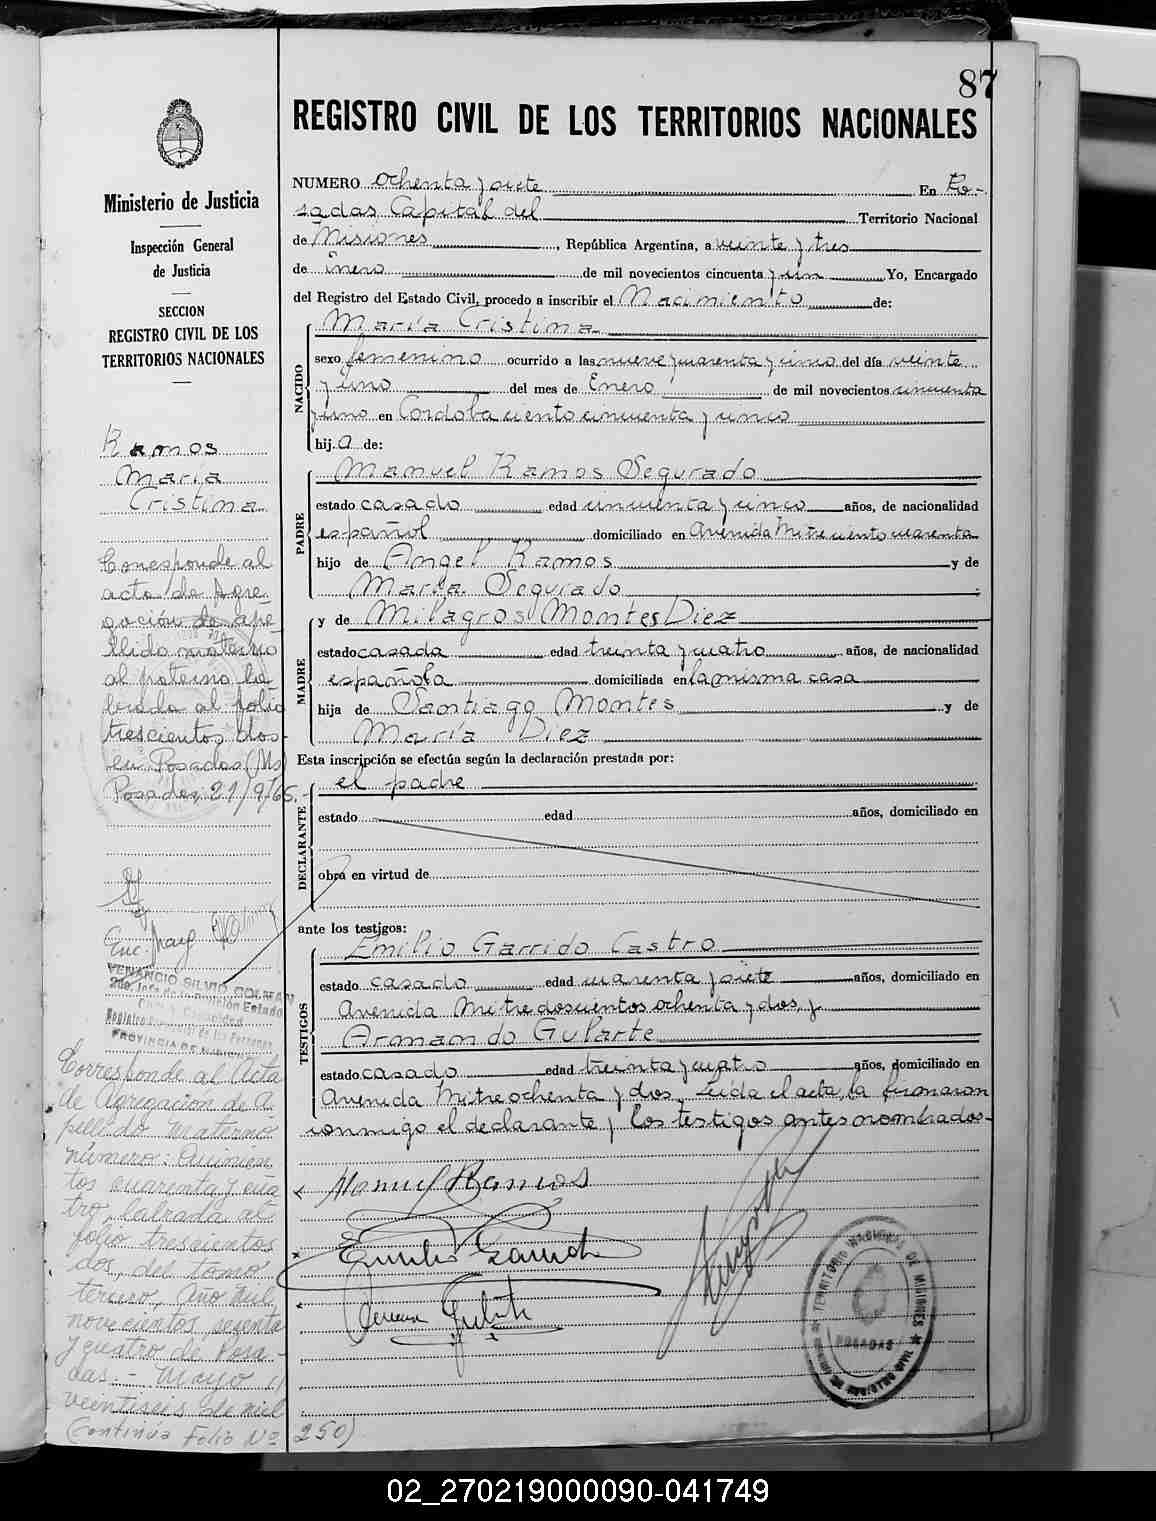 87
REGISTRO CIVIL DE LOS TERRITORIOS NACIONALES
Ministerio de Justicia
Inspección General
de Justicia
SECCION
REGISTRO CIVIL DE LOS
TERRITORIOS NACIONALES
Ramos
María
Cristina
Corresponde al
acta de Agre-
gación de ape-
llido materno
al paterno la-
brada al folio
trescientos dos
en Posadas (Ms)
Posadas, 21/9/65.
VENANCIO SILVIO GOLMAN
2do. Jefe de la División Estado
Civil y Capacidad
Registro Provincial de las Personas
PROVINCIA DE MISIONES
Corresponde al Acta
de Agregación de A
pellido materno
número: Quinien
tos cuarenta y cua
tro, labrada al
folio trescientos
dos, del tomo
tercero, Año mil
novecientos sesenta
y cuatro de Posa-
das.- Mayo
veintiseis de mil
(continúa Folio Nº 250)
NUMERO ochenta y siete En Po-
sadas, Capital del Territorio Nacional
de Misiones, República Argentina, a veinte y tres
de Enero de mil novecientos cincuenta y un Yo, Encargado
del Registro del Estado Civil, procedo a inscribir el Nacimiento de:
NACIDO
María Cristina
sexo femenino ocurrido a las nueve y cuarenta y cinco del día veinte
y uno del mes de Enero de mil novecientos cincuenta
y uno en Cordoba ciento cincuenta y cinco
hij.a de:
PADRE
Manuel Ramos Segurado
estado casado edad cincuenta y cinco años, de nacionalidad
español domiciliado en Avenida Mitre ciento cuarenta
hijo de Angel Ramos y de
María Segurado
MADRE
y de Milagros Montes Diez
estado casada edad treinta y cuatro años, de nacionalidad
española domiciliada en la misma casa
hija de Santiago Montes y de
María Diez
Esta inscripción se efectúa según la declaración prestada por:
DECLARANTE
el padre
estado edad años, domiciliado en
obra en virtud de
ante los testigos:
TESTIGOS
Emilio Garrido Castro
estado casado edad cuarenta y siete años, domiciliado en
Avenida Mitre doscientos ochenta y dos, y
Armando Gularte
estado casado edad treinta y cuatro años, domiciliado en
Avenida Mitre ochenta y dos. Leída el acta, la firmaron
conmigo el declarante y los testigos antes nombrados-
Manuel Ramos
Emilio Garrido
Gularte
TERRITORIO NACIONAL DE MISIONES
POSADAS
REGISTRO CIVIL
02_270219000090-041749